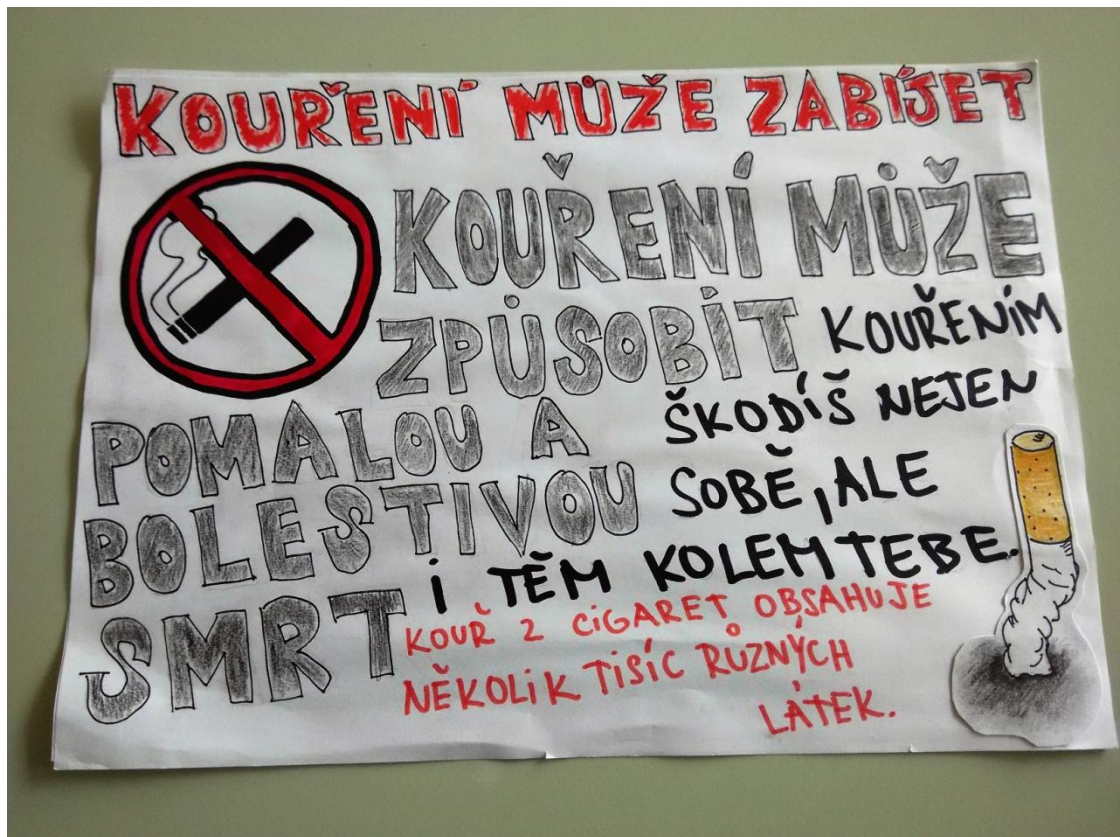 KOUŘENÍ MŮŽE ZABÍJET
KOUŘENÍ MŮŽE
ZPŮSOBIT
POMALOU A
BOLESTIVOU
SMRT
KOUŘENÍM
ŠKODÍŠ NEJEN
SOBĚ, ALE
i TĚM KOLEM TEBE.
KOUŘ Z CiGARET OBSAHUJE
NĚKOLiK TiSÍC RŮZNÝCH
LÁTEK.